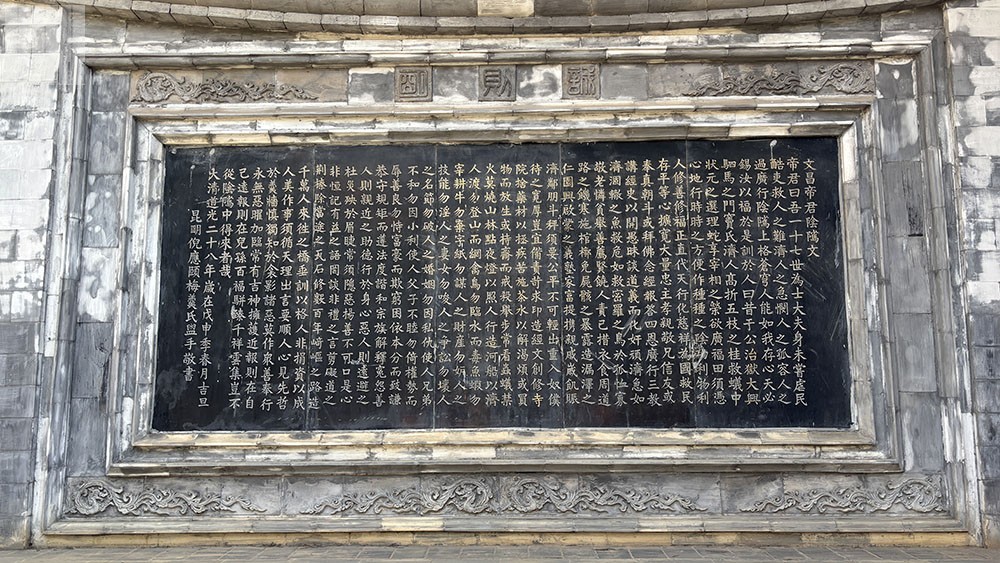 誠則明
文昌帝君陰隲文
帝君曰吾一十七世為士大夫身未嘗虐民
酷吏救人之難濟人之急憫人之孤容人之
過廣行陰隲上格蒼穹人能如我存心天必
錫汝以福於是訓於人曰昔于公治獄大興
駟馬之門竇氏濟人高折五枝之桂救蟻中
狀元之選埋蛇享宰相之榮欲廣福田須憑
心地行時時之方便作種種之陰功利物利
人修善修福正直代天行化慈祥為國救民
存平等心擴寬大量忠主孝親敬兄信友或
奉真朝斗或拜佛念經報答四恩廣行三教
講經史以開愚昧談道義而化奸頑濟急如
濟涸轍之魚救危如救密羅之鳥矜孤恤寡
敬老憐貧舉善薦賢饒人責己措衣食周道
路之饑寒施棺槨免屍骸之暴露造漏澤之
仁園興啟蒙之義塾家富提攜親戚歲飢賑
濟鄰朋斗秤須要公平不可輕出重入奴僕
待之寬厚豈宜備責苛求印造經文創修寺
院捨藥材以拯疾苦施茶水以解渴煩或買
物而放生或持齋而戒殺舉步常看蟲蟻禁
火莫燒山林點夜燈以照人行造河船以濟
人渡勿登山而網禽鳥勿臨水而毒魚蝦勿
宰耕牛勿棄字紙勿謀人之財產勿妒人之
技能勿淫人之妻女勿唆人之爭訟勿壞人
之名節勿破人之婚姻勿因私仇使人兄弟
不和勿因小利使人父子不睦勿倚權勢而
辱善良勿恃富豪而欺窮困依本分而致謙
恭守規矩而遵法度諧和宗族解釋冤怨善
人則親近之助德行於身心惡人則遠避之
杜災殃於眉睫常須隱惡揚善不可口是心
非恒記有益之語罔談非禮之言剪礙道之
荊榛除當途之瓦石修數百年崎嶇之路造
千萬人來往之橋垂訓以格人非捐資以成
人美作事須循天理出言要順人心見先哲
於羹牆慎獨知於衾影諸惡莫作眾善奉行
永無惡曜加臨常有吉神擁護近報則在自
己遠報則在兒孫百福駢臻千祥雲集豈不
從陰隲中得來者哉
大清道光二十八年歲在戊申季春月吉旦
昆明倪應頤梅羹氏盥手敬書